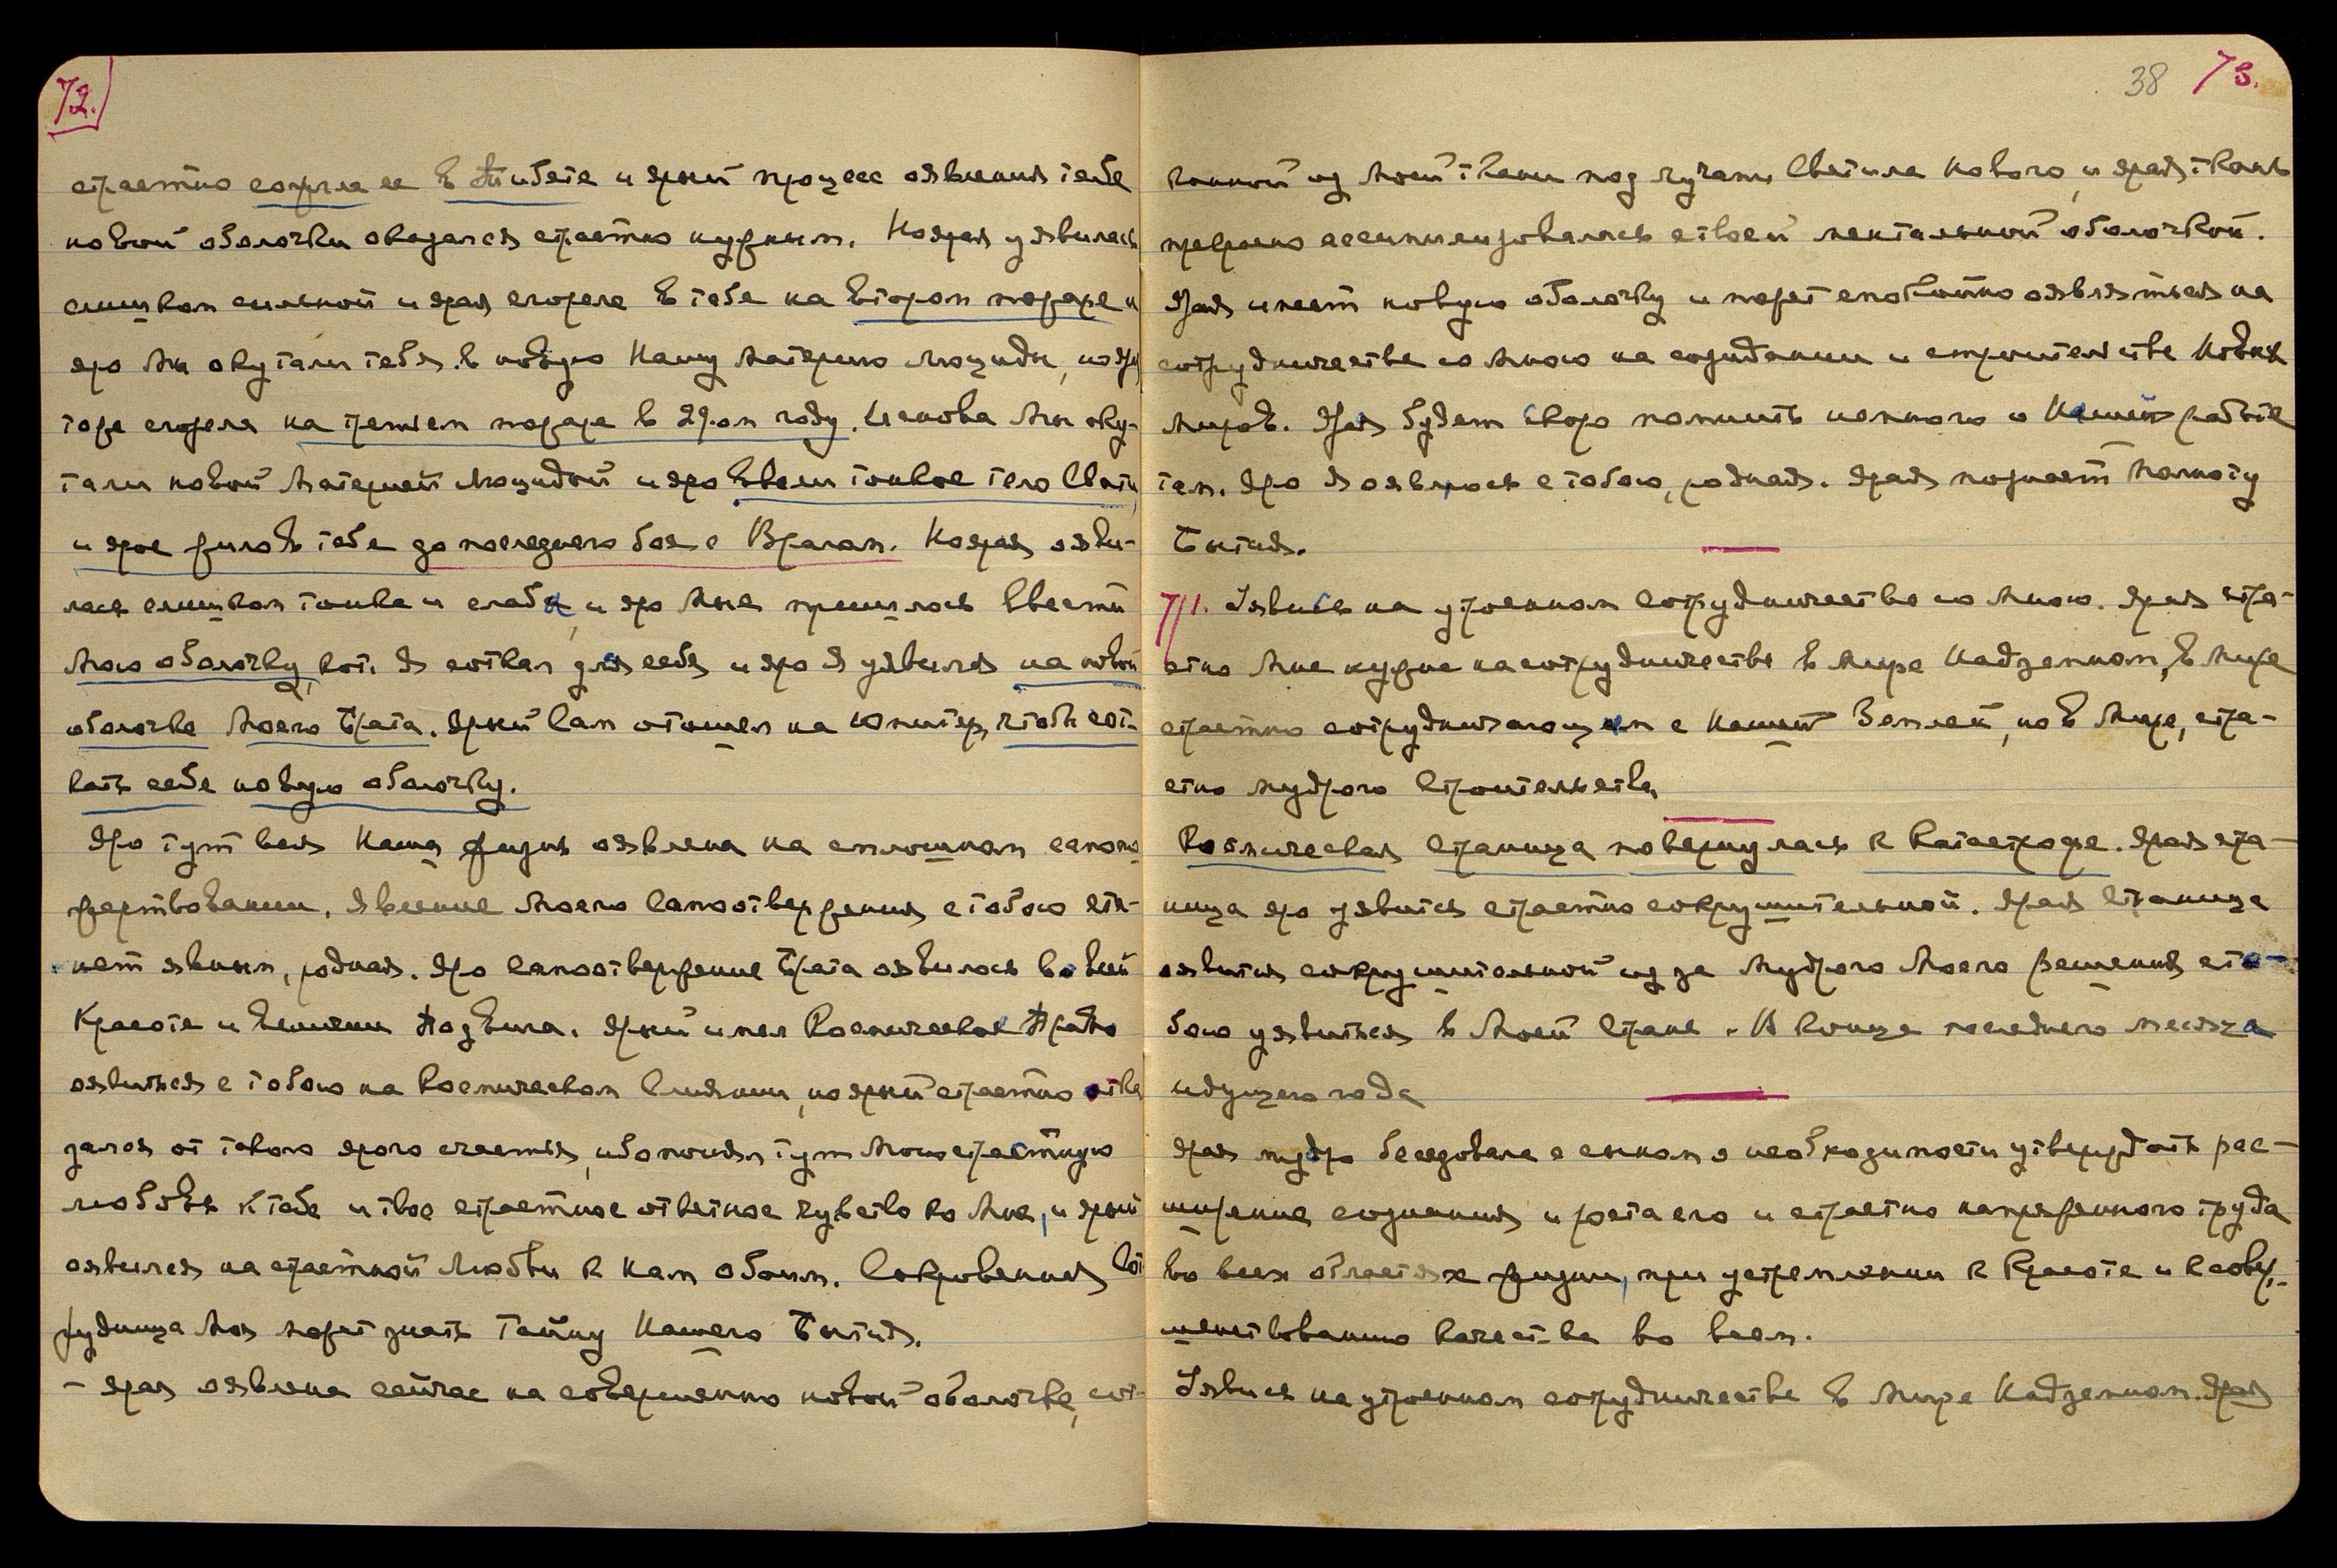 72.
страстно сожгла ее в Тибете и ярый процесс оявления тебе
новой оболочки оказался страстно нужным. Но ярая уявилась
слишком сильной и ярая сгорела в тебе на втором пожаре и
яро Мы окутали тебя в новую Нашу Материю Люциды, но яро
тоже сгорела на третьем пожаре в 29ом году. И снова Мы оку-
тали новой Материей Люцидой и яро ввели тонкое тело Свати
и ярое жило в тебе до последнего боя с Врагом. Но ярая ояви-
лась слишком тонка и слаба, и яро Мне пришлось ввести
Мою оболочку, кот. Я соткал для себя и яро Я уявился на новой
оболочке Моего Брата. Ярый Сам отошел на Юпитер, чтобы сот-
кать себе новую оболочку.
Яро тут вся Наша жизнь оявлена на сплошном самопо-
жертвовании. Явление Моего Самоотвержения с тобою ста-
нет явным, родная. Яро самоотвержение Брата оявилось во всей
Красоте и величии Подвига. Ярый имел Космическое Право
оявиться с тобою на Космическом Слиянии, но ярый страстно отка
зался от такого ярого счастья, ибо понял тут Мою страстную
любовь к тебе и твое страстное ответное чувство ко Мне, и ярый
оявился на страстной Любви к Нам обоим. Сокровенная Сот
рудница Моя может знать Тайну Нашего Бытия.
– ярая оявлена сейчас на совершенно новой оболочке, сот-
38 73.
канной из Моей ткани под лучами Светила Нового, и ярая ткань
прекрасно ассимилировалась с твоей ментальной оболочкой.
Ярая имеет новую оболочку и может спокойно оявляться на
сотрудничестве со Мною на созидании и строительстве Новых
Миров. Ярая будет скоро помнить немного о Нашей работе
там. Яро Я оявлюсь с тобою, родная. Ярая познает Полноту
Бытия.
7/1. Уявись на утроенном сотрудничестве со Мною. Ярая стра-
стно Мне нужна на сотрудничестве в Мире Надземном, в Мире
страстно сотрудничающем с Нашей Землей, но в Мире, стра-
стно мудрого Строительства
Космическая Страница повернулась к Катастрофе. Ярая стра-
ница яро уявится страстно сокрушительной. Ярая Страница
оявится сокрушительной из за Мудрого Моего решения с то-
бою уявиться в Моей Стране. К концу последнего месяца
идущего года
Ярая мудро беседовала с сыном о необходимости утверждать рас-
ширение сознания и роста его и страстно напряженного труда
во всех областях жизни, при устремлении к Красоте и к совер-
шенствованию качества во всем.
Уявись на утроенном сотрудничестве в Мире Надземном. Ярая